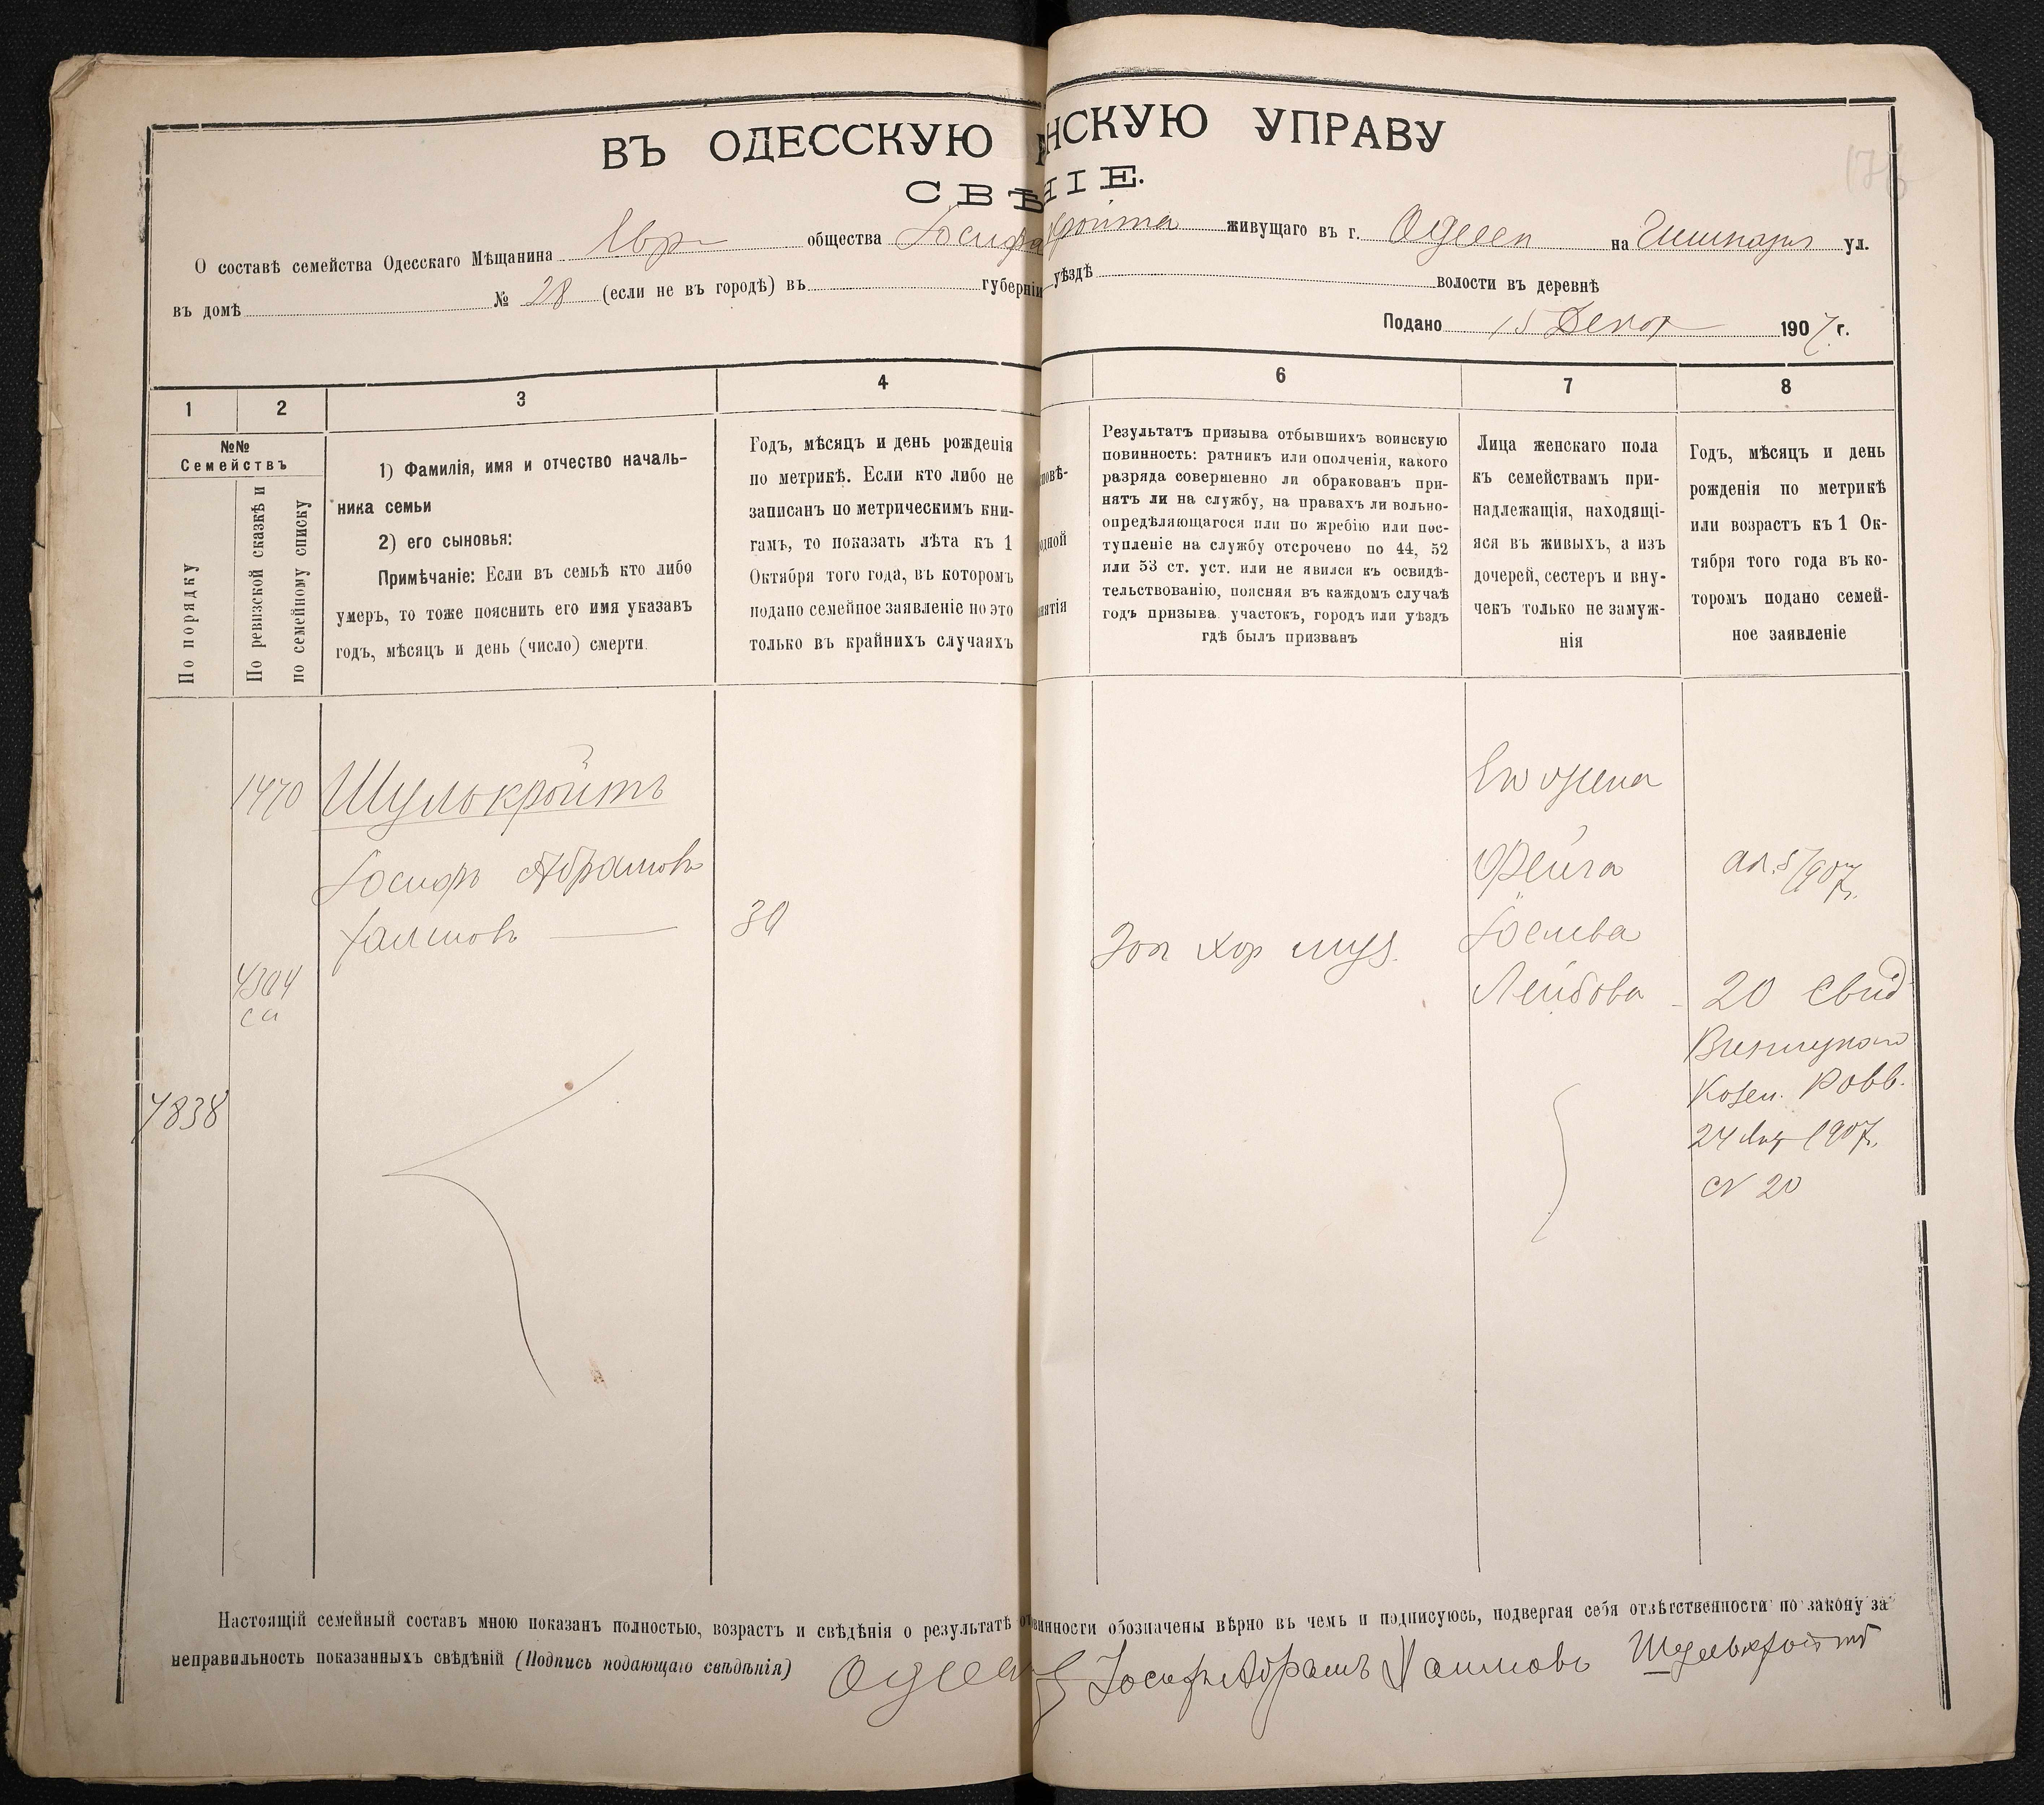 ВЪ ОДЕССКУЮ НСКУЮ УПРАВУ
СВѢ НІЕ.
О составѣ семейства Одесскаго Мѣщанина Евр общества Іосифа кройта живущаго въ г. Одессѣ на ул.
въ домѣ № 28 (если не въ городѣ) въ губерніи уѣздѣ волости въ деревнѣ
Подано 15 Декаб 1907 г.
1 2 3 4 6 7 8
№№
Семействъ
По порядку
По ревизской сказкѣ и
по семейному списку
1) Фамилія, имя и отчество началь-
ника семьи
2) его сыновья:
Примѣчаніе: Если въ семьѣ кто либо
умеръ, то тоже пояснить его имя указавъ
годъ, мѣсяцъ и день (число) смерти.
Годъ, мѣсяцъ и день рожденія
по метрикѣ. Если кто либо не
записанъ по метрическимъ кни-
гамъ, то показать лѣта къ 1
Октября того года, въ которомъ
подано семейное заявленіе но это
только въ крайнихъ случаяхъ
повѣ-
одной
нятія
Результатъ призыва отбывшихъ воинскую
повинность: ратникъ или ополченія, какого
разряда совершенно ли обракованъ при-
нятъ ли на службу, на правахъ ли вольно-
опредѣляющагося или по жребію или пос-
тупленіе на службу отсрочено по 44, 52
или 53 ст. уст. или не явился къ освидѣ-
тельствованію, поясняя въ каждомъ случаѣ
годъ призыва участокъ, городъ или уѣздъ
гдѣ былъ призванъ
Лица женскаго пола
къ семействамъ при-
надлежащія, находящі-
яся въ живыхъ, а изъ
дочерей, сестеръ и вну-
чекъ только не замуж-
нія
Годъ, мѣсяцъ и день
рожденія по метрикѣ
или возрастъ къ 1 Ок-
тября того года въ ко-
торомъ подано семей-
ное заявленіе
1470 Шулькройтъ
Іосифъ Абрамовъ
Хаимовъ 30
4304
7838
Его жена
Фейга
Іосиева
Лейбова
1907г.
20 Свид
Винницкаго
Казен. Равв.
24 1907г.
№ 20
Настоящій семейный составъ мною показанъ полностью, возрастъ и свѣдѣнія о результатѣ о винности обозначены вѣрно въ чемъ и подписуюсь, подвергая себя отвѣтственности по закону за
неправильность показанныхъ свѣдѣній (Подпись подающаго свѣдѣнія) Одесса Іосифъ Абрамъ Хаимовъ Шулькройтъ